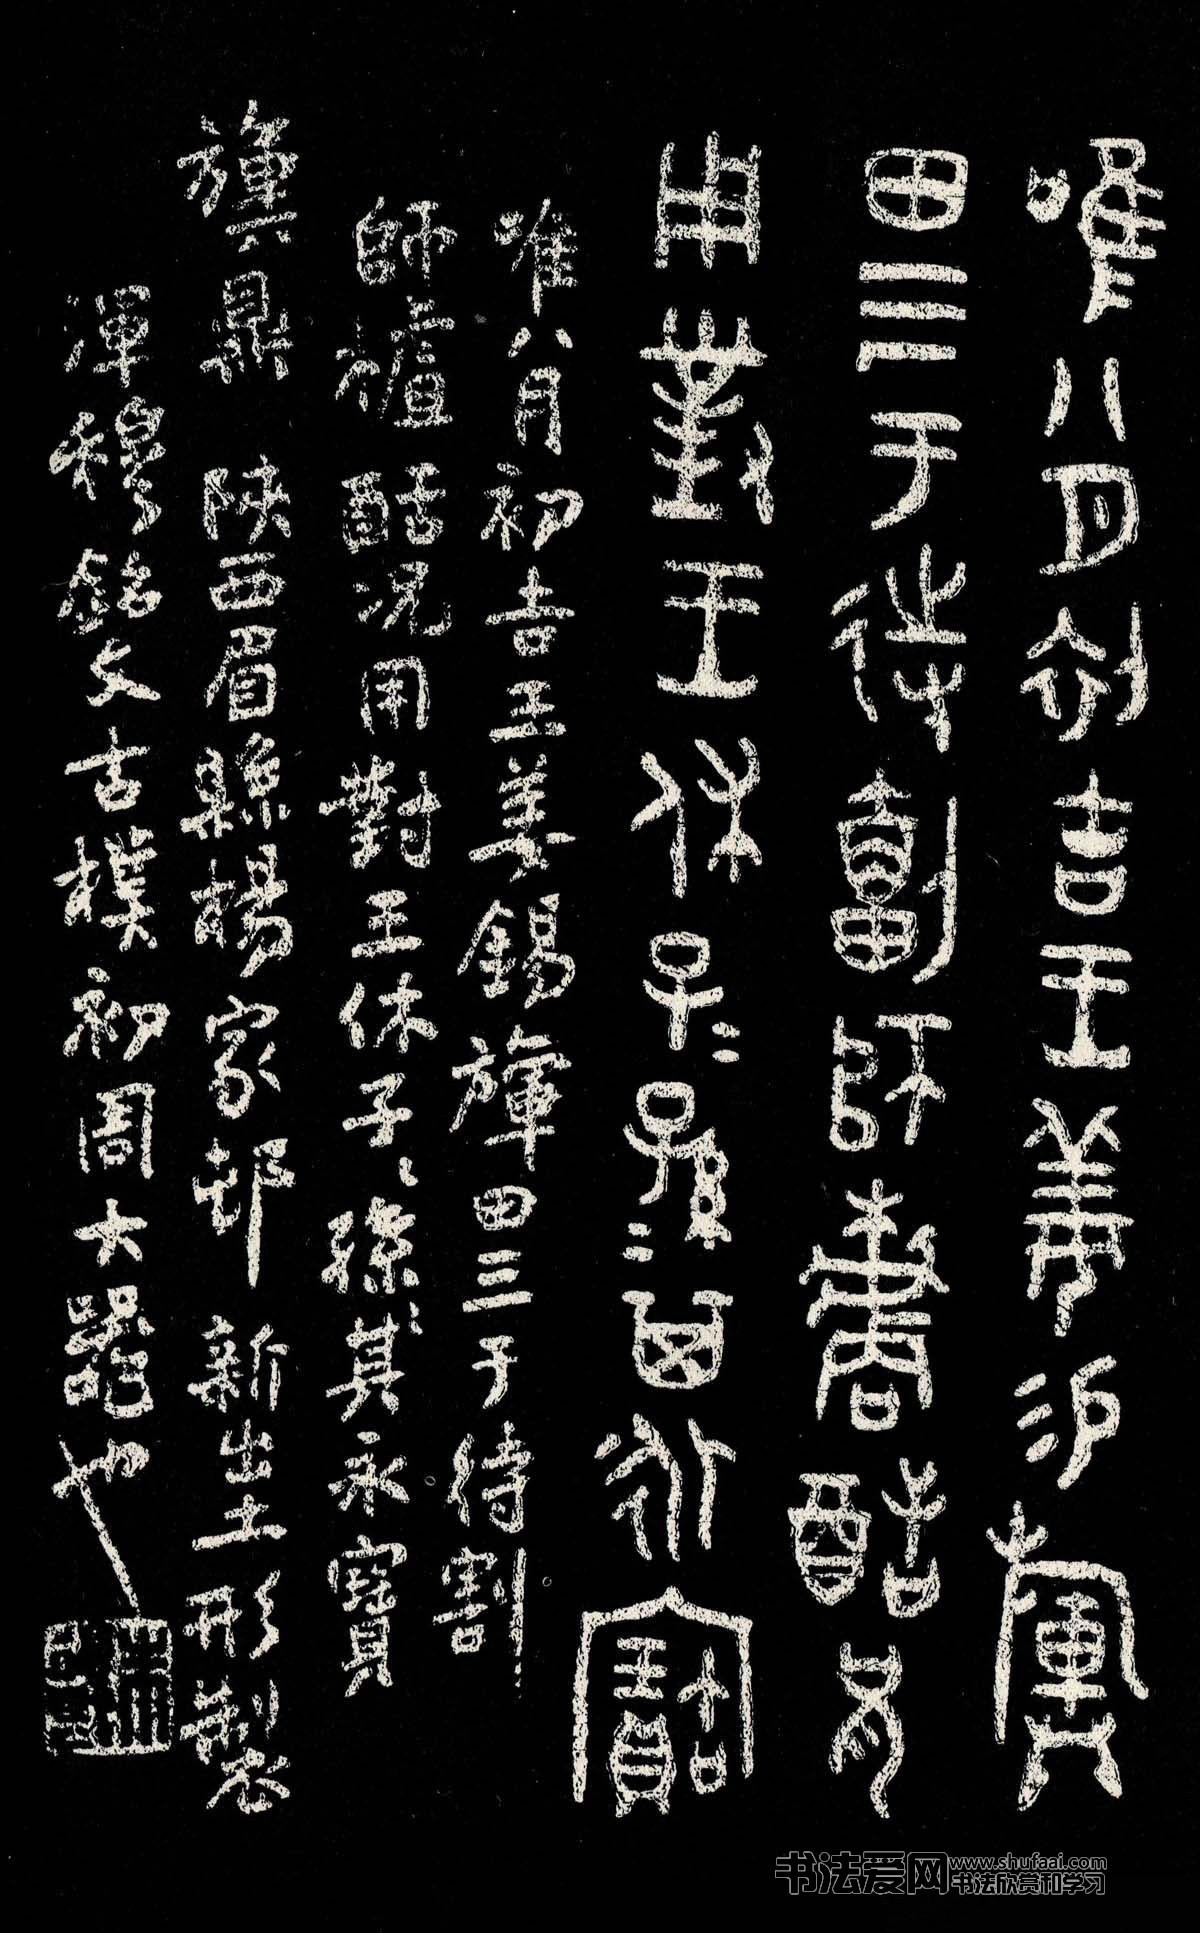 唯八月初吉王姜易旟
田三于待劃師櫨酷兄
用對王休子〻孫〻其永寶
唯八月初吉王姜錫旟田三于待割
師櫨酷況用對王休子〻孫〻其永寶
旟鼎 陝西眉縣楊家邨新出土形製
渾穆銘文古樸初周大器也
书法爱网
www.shufaai.com
书法欣赏和学习